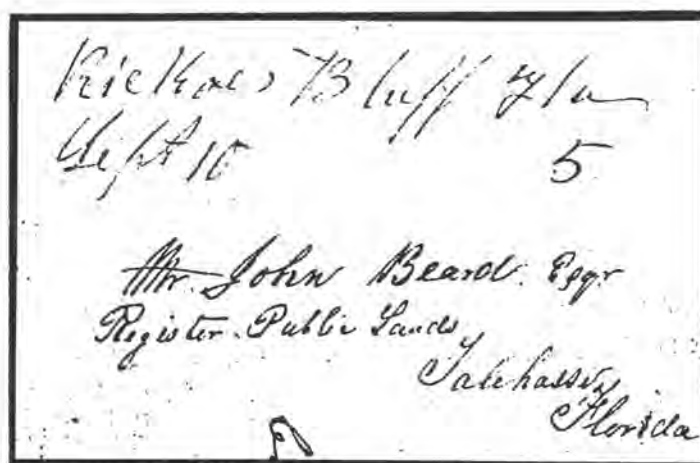 Rickoes Bluff Fla
Sept 10 5
Mr. John Beard. Esqr
Register Public Lands
Talehassee
Florida